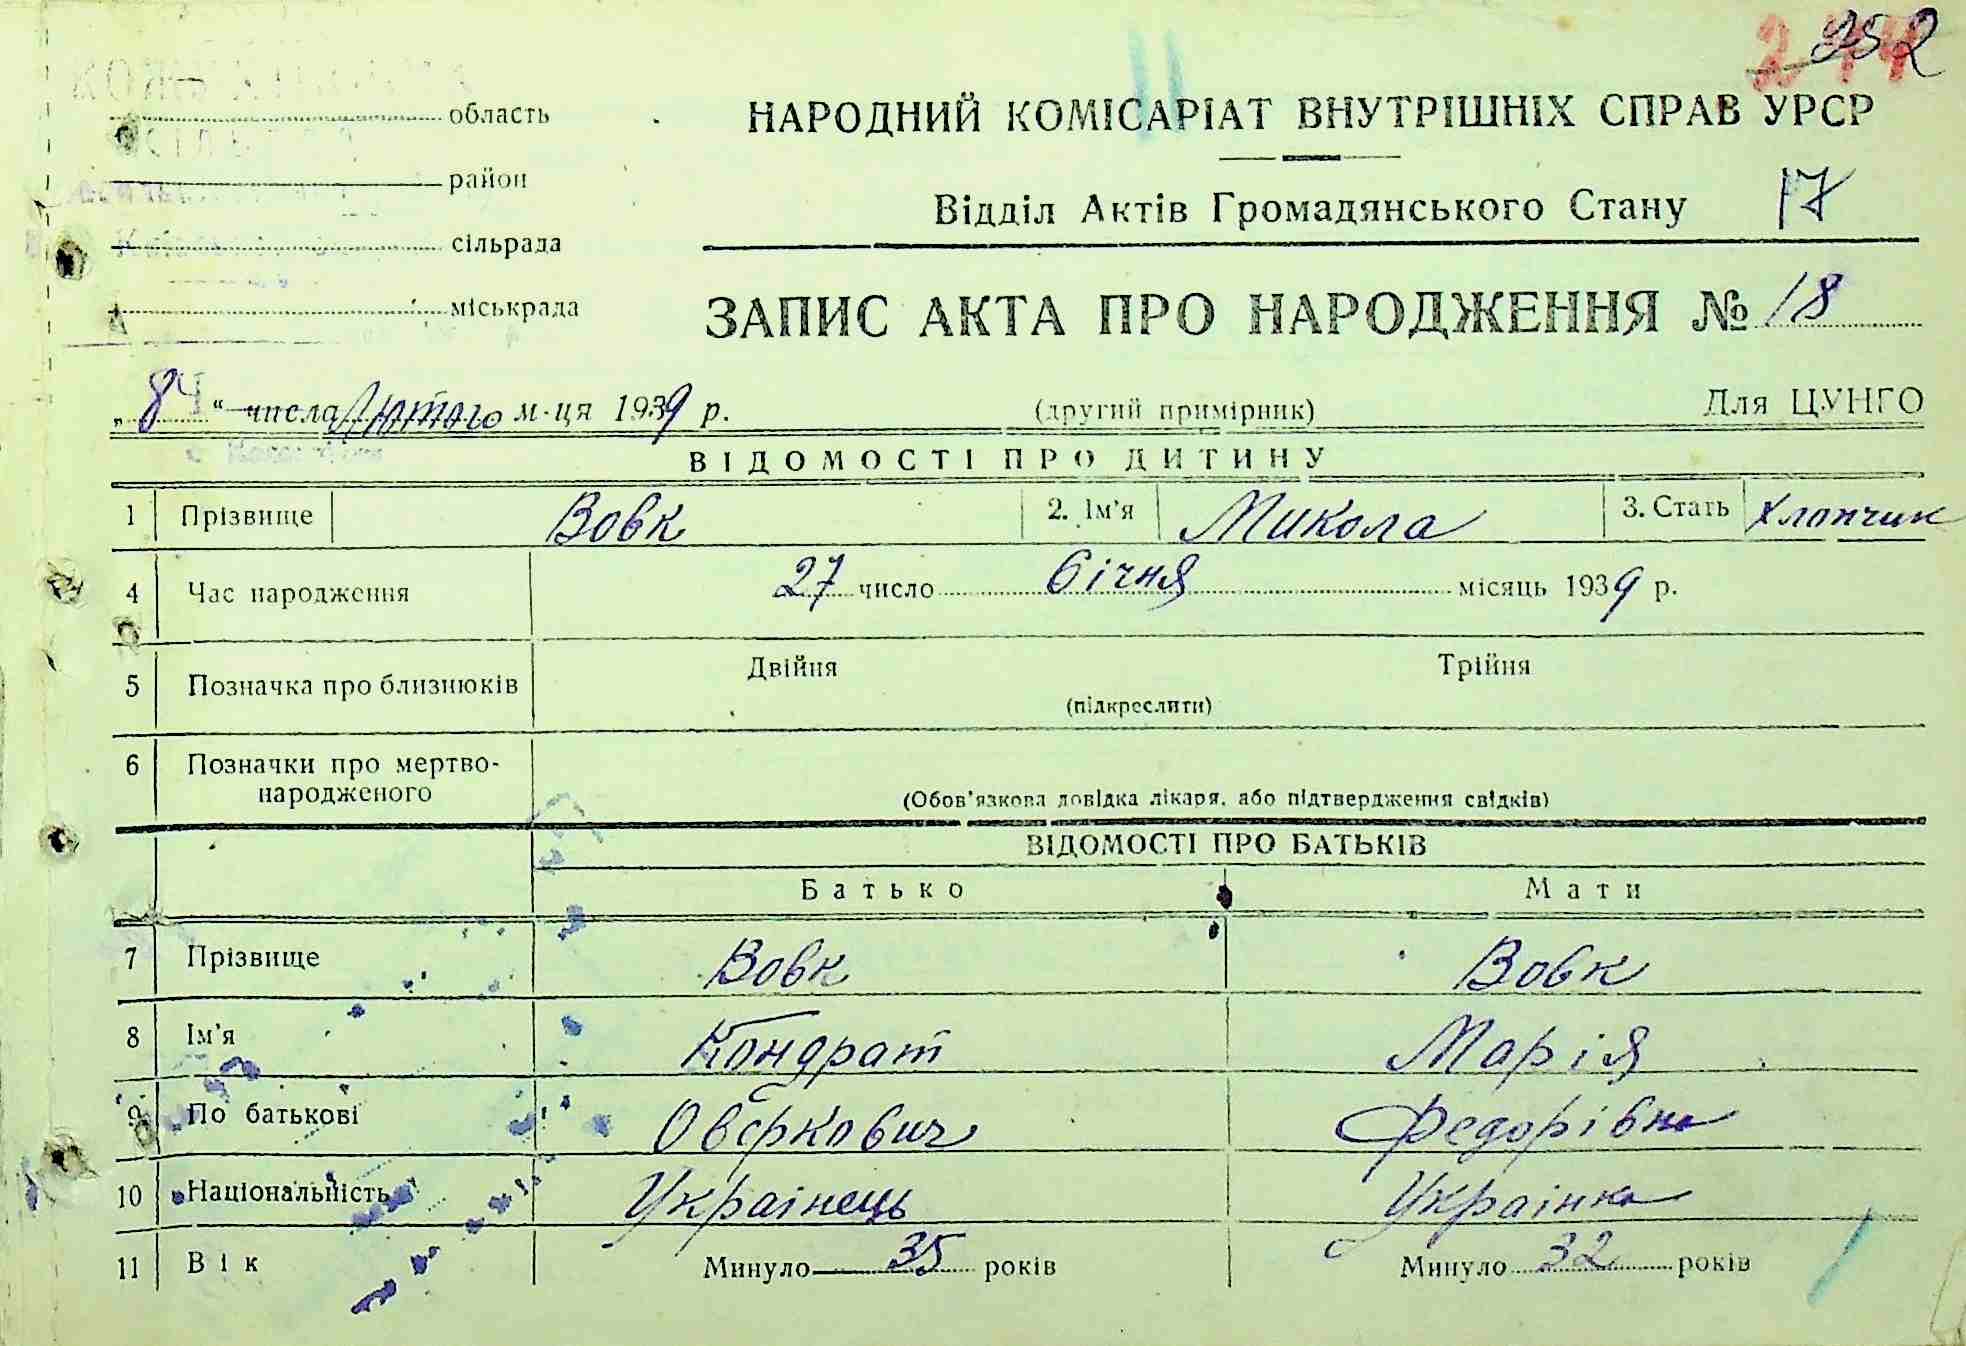 244 352
область
НАРОДНИЙ КОМІСАРІАТ ВНУТРІШНІХ СПРАВ УРСР
район
Відділ Актів Громадянського Стану 17
сільрада
міськрада
ЗАПИС АКТА ПРО НАРОДЖЕННЯ № 18
„ 84 “ числа Лютого м-ця 1939 р. (другий примірник) Для ЦУНГО
ВІДОМОСТІ ПРО ДИТИНУ
1 Прізвище Вовк 2. Ім'я Микола 3. Стать Хлопчик
4 Час народження 27 число Січня місяць 1939 р.
5 Позначка про близнюків Двійня Трійня
(підкреслити)
6 Позначки про мертво-
народженого
(Обов'язкова довідка лікаря, або підтвердження свідків)
ВІДОМОСТІ ПРО БАТЬКІВ
Батько Мати
7 Прізвище Вовк Вовк
8 Ім'я Кондрат Марія
9 По батькові Оверкович Федорівна
10 Національність Українець Українка
11 Вік Минуло 35 років Минуло 32 років